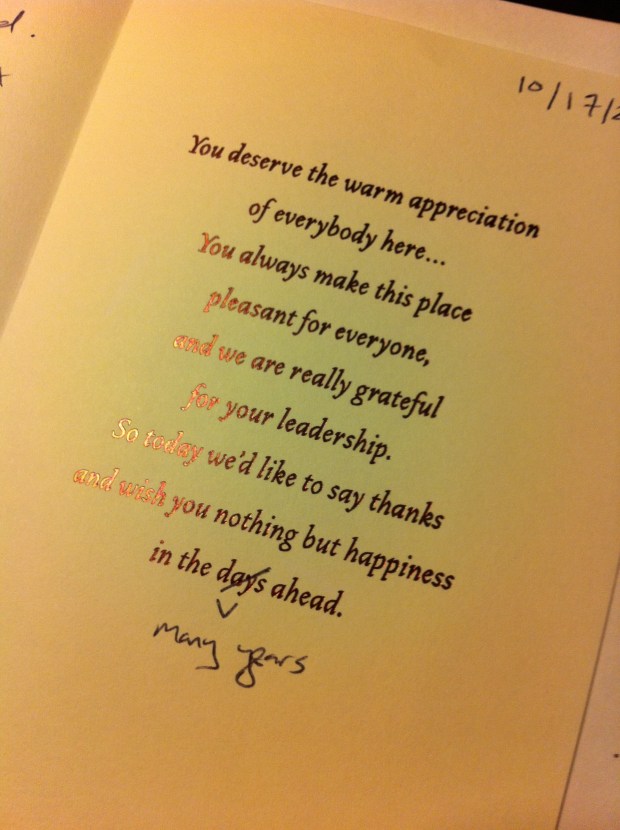 d.
10/17/2
You deserve the warm appreciation
of everybody here...
You always make this place
pleasant for everyone,
and we are really grateful
for your leadership.
So today we'd like to say thanks
and wish you nothing but happiness
in the days ahead.
many years